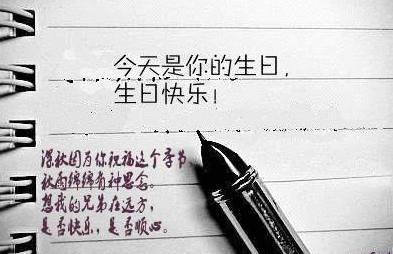 今天是你的生日,
生日快乐!
深秋因为你祝福这个季节
秋雨绵绵有种思念。
想我的兄弟在远方,
是否快乐,是否顺心。